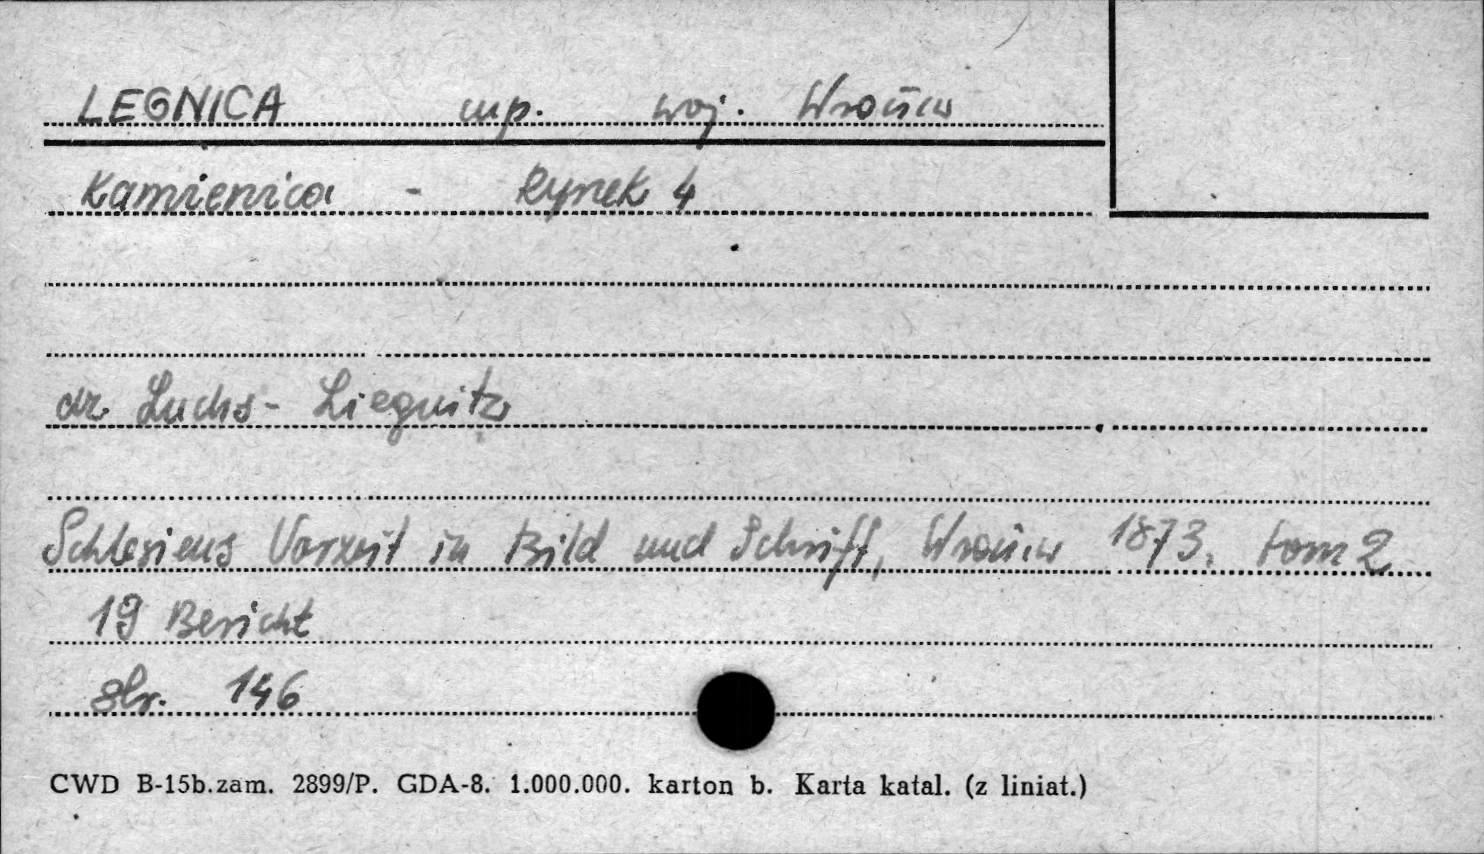 LEGNICA mp. woj. Wrocław
Kamienica - Rynek 4
dr Luchs - Liegnitz
Schlesiens Vorzeit in Bild und Schrift, Wrocław 1873. tom 2
19 Bericht
str. 146
CWD B-15b.zam. 2899/P. GDA-8. 1.000.000. karton b. Karta katal. (z liniat.)